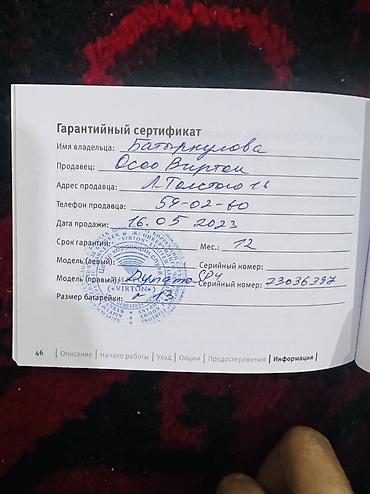 Гарантийный сертификат
Имя владельца: Батыркулова
Продавец: ОсОО Виртон
Адрес продавца: Л.Толстого
Телефон продавца: 59-02-60
Дата продажи: 16.05 2023
Срок гарантии: Мес.: 12
Модель (левый): Серийный номер:
Модель (правый): Серийный номер: 23036397
Размер батарейки: 13
«VIRTON»
46 | Описание | Начало работы | Уход | Опции | Предостережения | Информация |